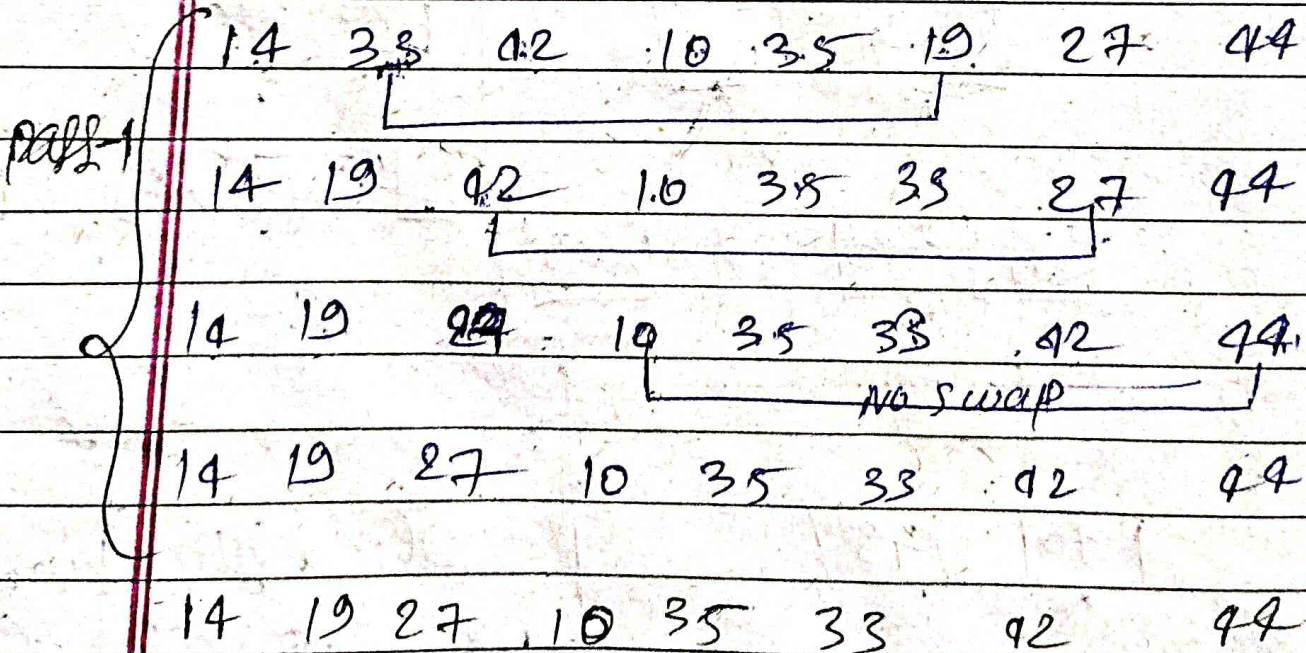 14 33 42 10 35 19 27 44
pass-1
14 19 42 10 35 33 27 44
14 19 27 10 35 33 42 44
No swap
14 19 27 10 35 33 42 44
14 19 27 10 35 33 42 44